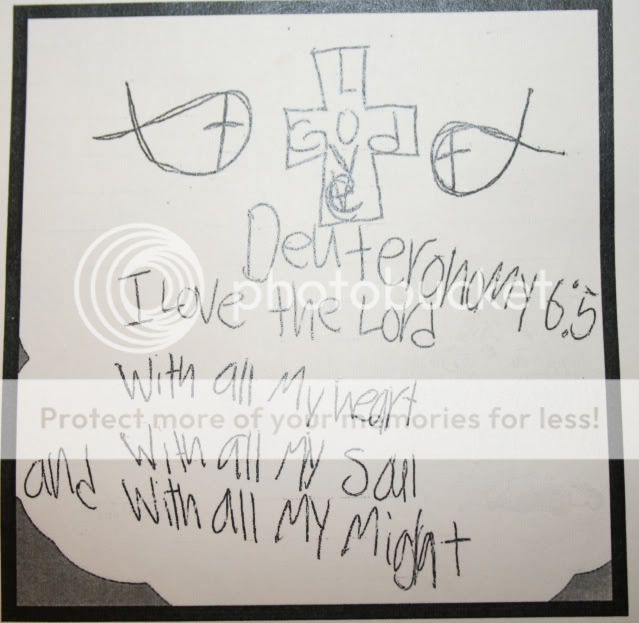 L
God
V
e
Deuteronomy 6:5
photobucket
I Love the Lord
With all My heart
Protect more of your memories for less!
With all My Saul
and With all My Might